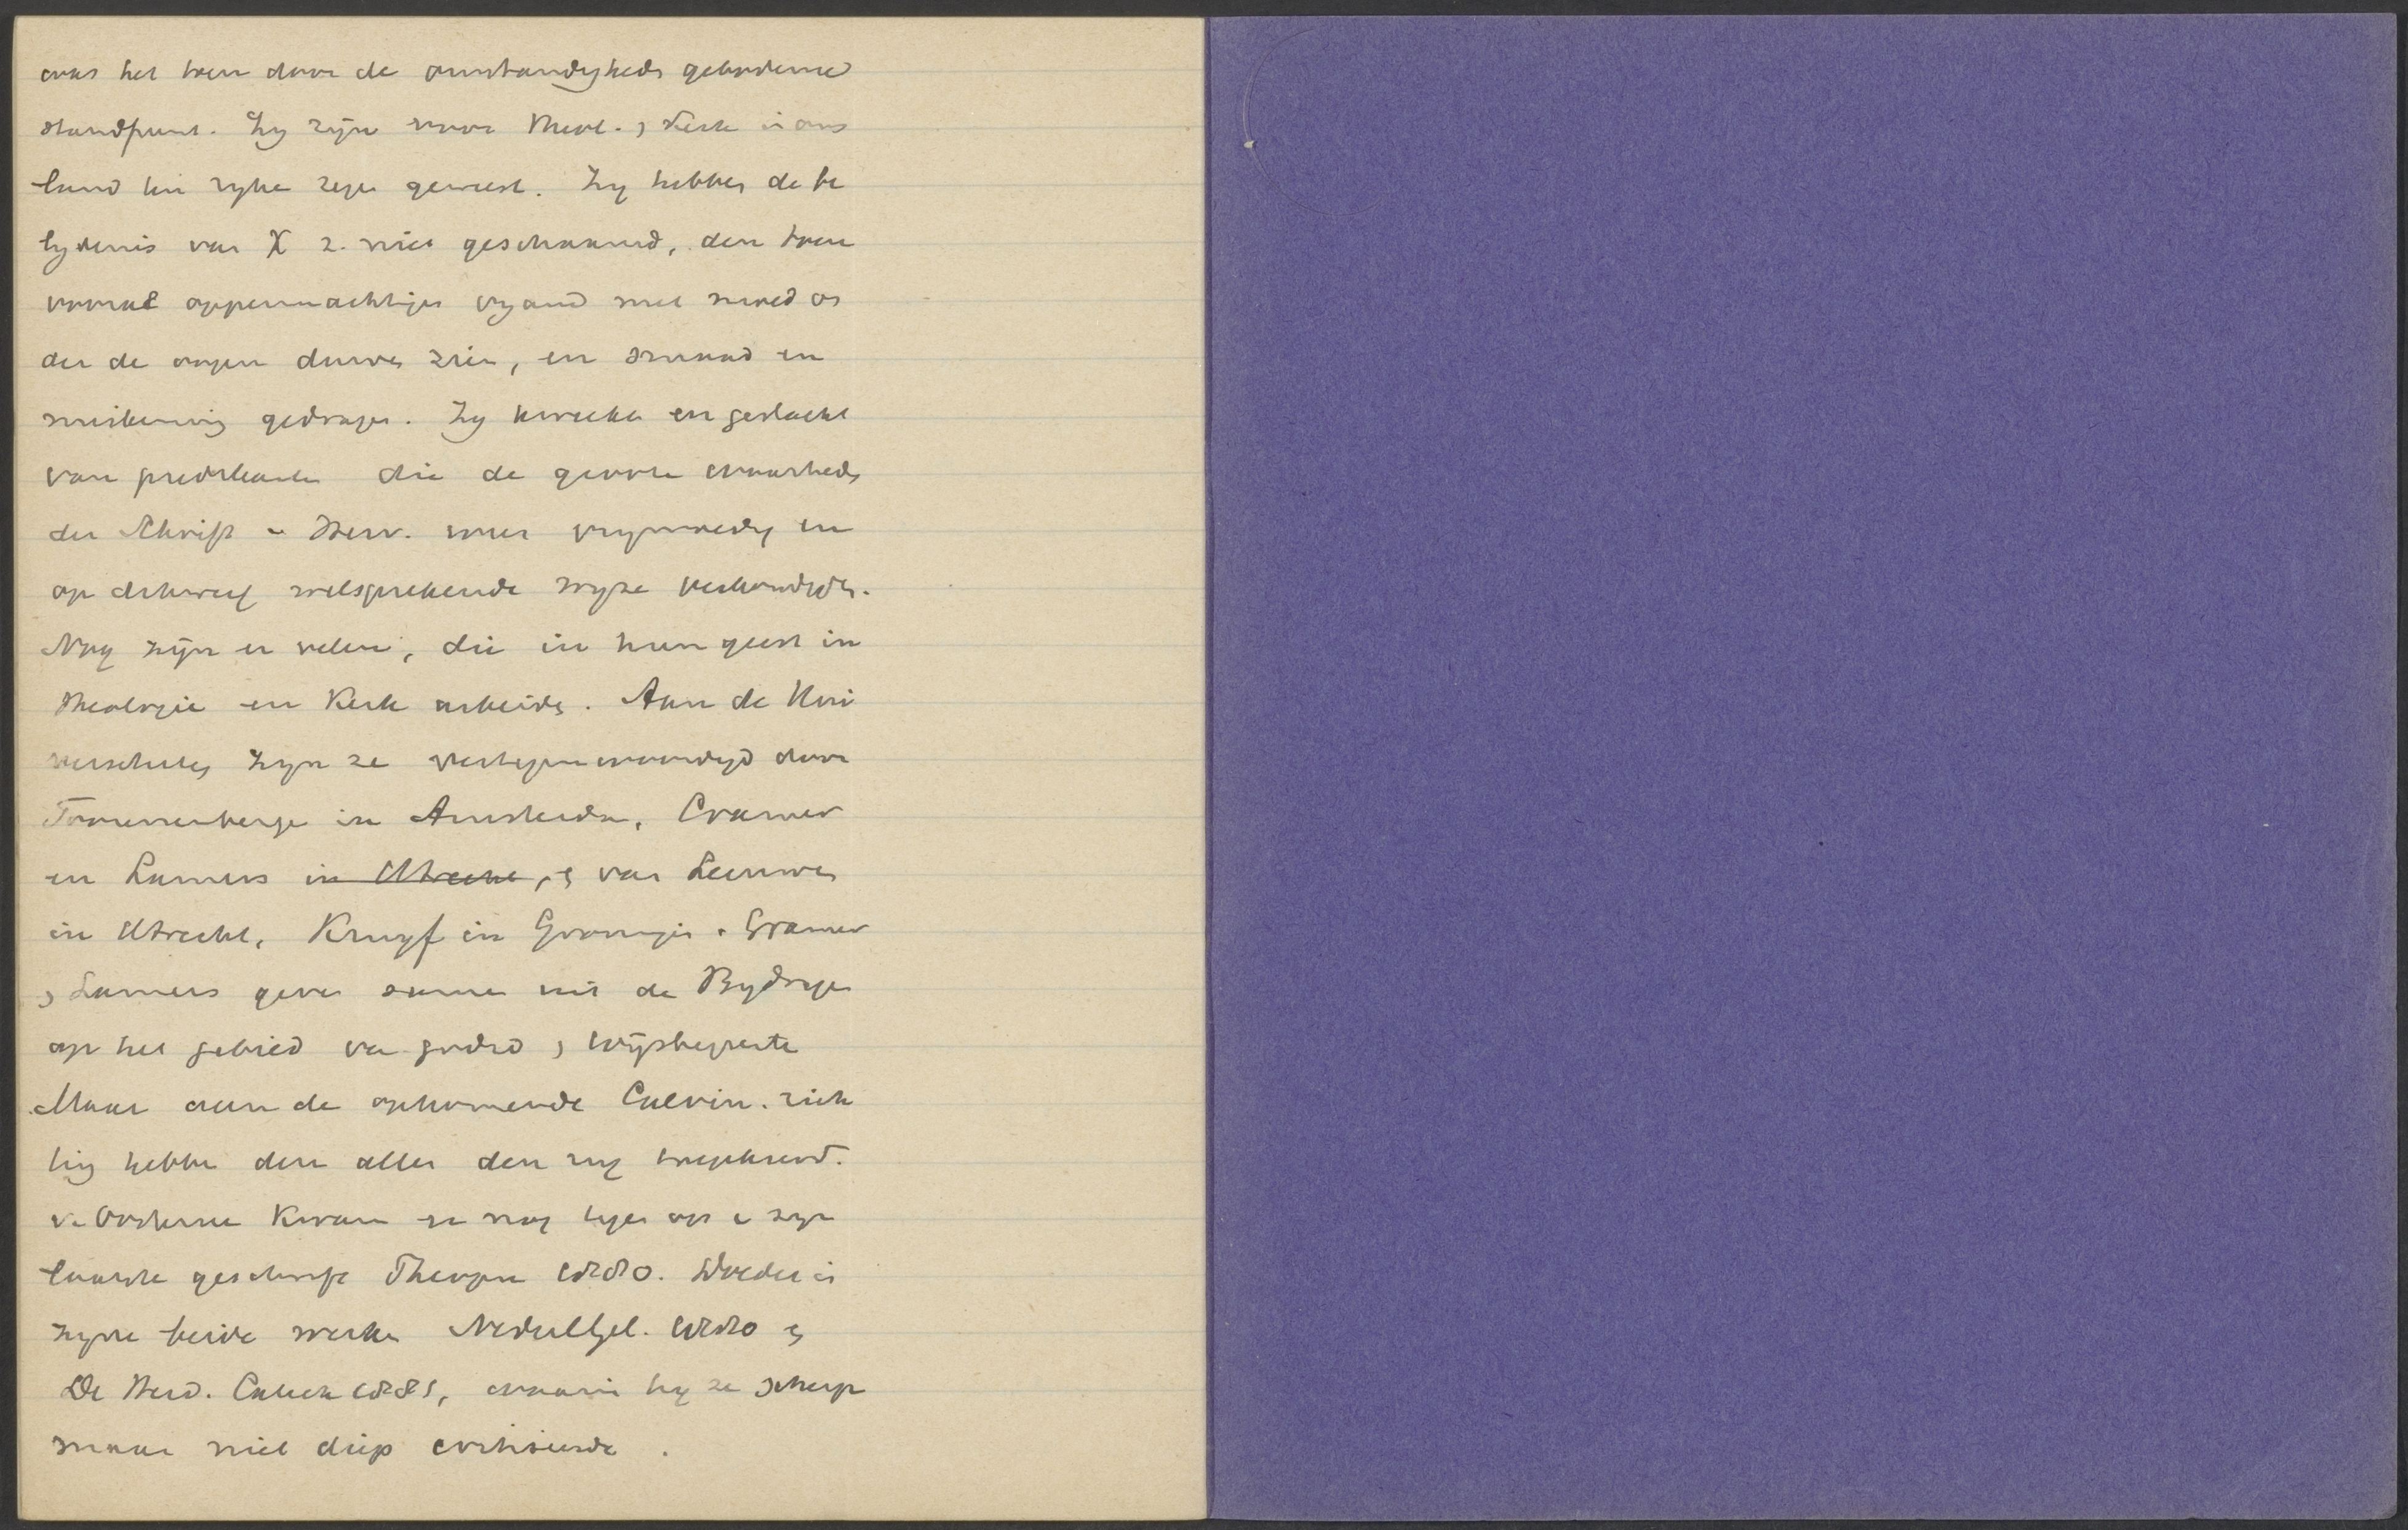 was het toen door de omstandigheden gebodene
standpunt. Zy zijn voor Theol. en Kerk in ons
land ten ryke zegen geweest. Zy hebben de be
lydenis van X z. niet geschaamd, den toen
vooral oppermachtigen vyand met moed on
der de oogen durven zien, en smaad en
miskenning gedragen. Zy kweekten een geslacht
van predikanten die de groote waarheden
der Schrift en Herv. weer vrymoedig en
op dikwerf welsprekende wyze verkondigden.
Nog zijn er velen, die in hun geest in
Theologie en Kerk arbeiden. Aan de Uni
versiteiten zyn ze vertegenwoordigd door
Tonnenberge in Amsterdam, Cramer
en Lamers in Utrecht, en van Leeuwen
in Utrecht, Kruyf in Groningen. Cramer
en Lamers geven samen uit de Bydragen
op het gebied van godsd en wijsbegeerte
Maar aan de opkomende Calvin. rich
ting hebben den allen den rug toegekeerd.
v. Oosterzee kwam er nog tegen op in zyn
laatste geschrift Theopn 1880. Doedes in
zyne beide werken Nederl Gel. 1880 en
De Heid. Catech 1881, waarin hy ze scherp
maar niet diep critiseerde.